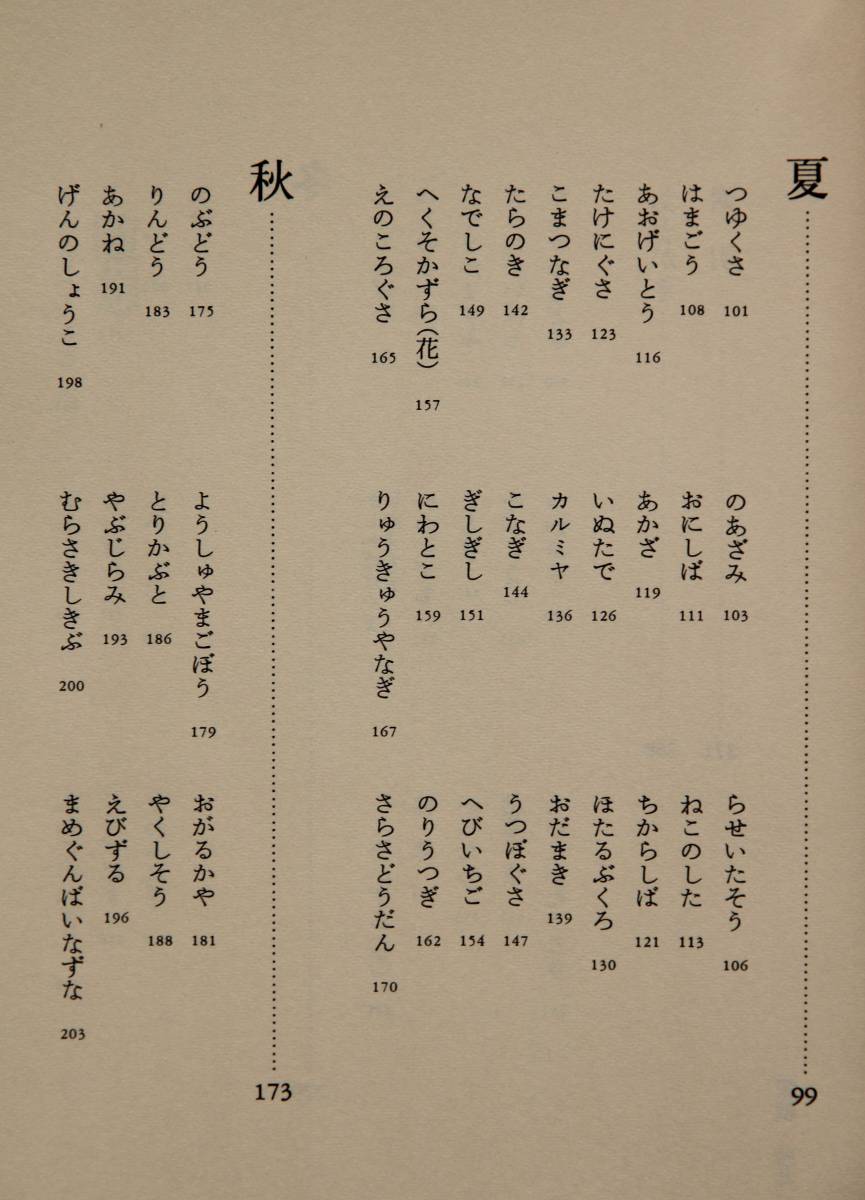 夏……………………99
つゆくさ 101
のあざみ 103
らせいたそう 106
はまごう 108
おにしば 111
ねこのした 113
あおげいとう 116
あかざ 119
ちからしば 121
たけにぐさ 123
いぬたで 126
ほたるぶくろ 130
こまつなぎ 133
カルミヤ 136
おだまき 139
たらのき 142
こなぎ 144
うつぼぐさ 147
なでしこ 149
ぎしぎし 151
へびいちご 154
へくそかずら(花) 157
にわとこ 159
のりうつぎ 162
えのころぐさ 165
りゅうきゅうやなぎ 167
さらさどうだん 170
秋……………………173
のぶどう 175
ようしゅやまごぼう 179
おがるかや 181
りんどう 183
とりかぶと 186
やくしそう 188
あかね 191
やぶじらみ 193
えびずる 196
げんのしょうこ 198
むらさきしきぶ 200
まめぐんばいなずな 203